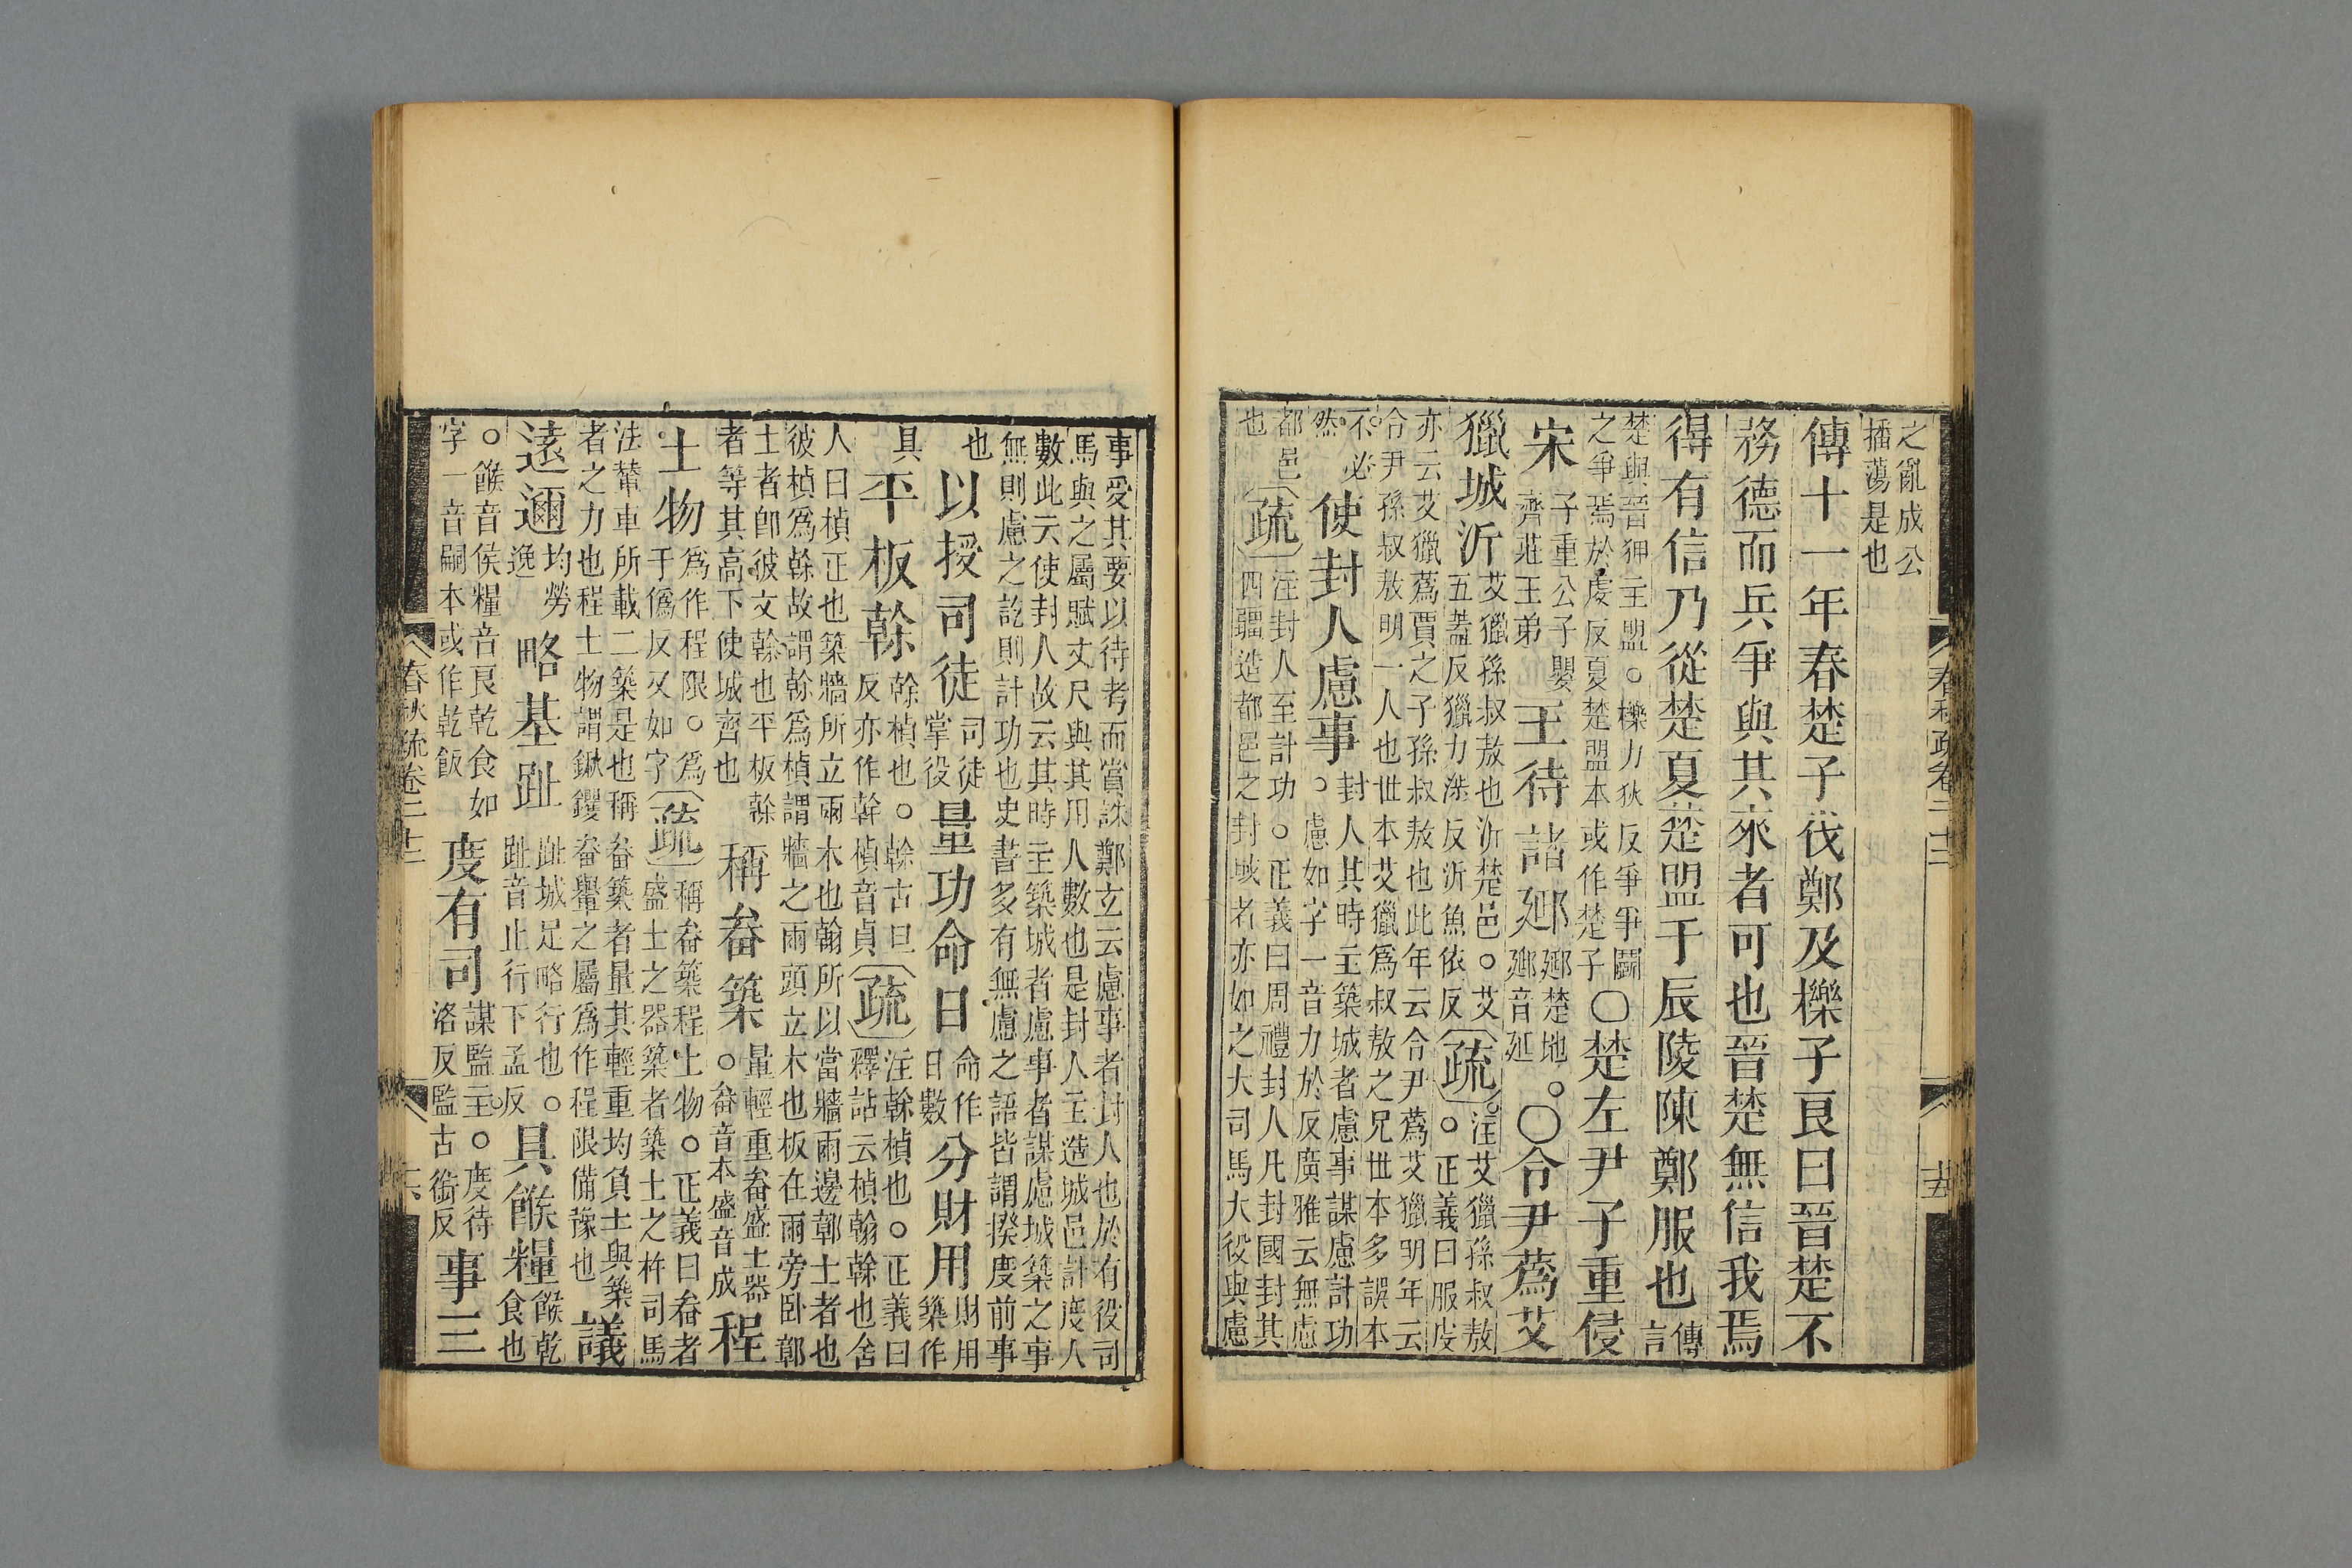 之亂成公
播蕩是也
傳十一年春楚子伐鄭及櫟子良曰晉楚不
務德而兵爭與其來者可也晉楚無信我焉
得有信乃從楚夏楚盟于辰陵陳鄭服也傳言
楚與晉狎主盟○櫟力狄反爭爭鬬
之爭焉於虔反夏楚盟本或作楚子
○楚左尹子重侵
宋
子重公子嬰
齊莊王弟
王待諸郔
郔楚地
郔音延
○令尹蒍艾
獵城沂
艾獵孫叔敖也沂楚邑○艾
五蓋反獵力涉反沂魚依反
疏
注艾獵孫叔敖
○正義曰服虔
亦云艾獵蒍賈之子孫叔敖也此年云令尹蒍艾獵明年云
令尹孫叔敖明一人也世本艾獵爲叔敖之兄世本多誤本
不必
然
使封人慮事
封人其時主築城者慮事謀慮計功
○慮如字一音力於反廣雅云無慮
都邑
也
疏
注封人至計功○正義曰周禮封人凡封國封其
四疆造都邑之封域者亦如之大司馬大役與慮
事受其要以待考而賞誅鄭玄云慮事者封人也於有役司
馬與之屬賦丈尺與其用人數也是封人主造城邑計度人
數此云使封人故云其時主築城者慮事者謀慮城築之事
無則慮之訖則計功也史書多有無慮之語皆謂揆度前事
也
以授司徒
司徒
掌役
量功命日
命作
日數
分財用
財用
築作
具
平板榦
榦楨也○榦古旦
反亦作幹楨音貞
疏
注榦楨也○正義曰
釋詁云楨翰榦也舍
人曰楨正也築牆所立兩木也翰所以當牆兩邊鄣土者也
彼楨爲榦故謂榦爲楨謂牆之兩頭立木也板在兩旁卧鄣
土者卽彼文榦也平板榦
者等其高下使城齊也
稱畚築
量輕重畚盛土器
○畚音本盛音成
程
土物
爲作程限○爲
于僞反又如字
疏
稱畚築程土物○正義曰畚者
盛土之器築者築土之杵司馬
法輦車所載二築是也稱畚築者量其輕重均負土與築
者之力也程土物謂鍬钁畚轝之屬爲作程限備豫也
議
遠邇
均勞
逸
略基趾
趾城足略行也○
趾音止行下孟反
具餱糧
餱乾
食也
○餱音侯糧音良乾食如
字一音嗣本或作乾飯
度有司
謀監主○度待
洛反監古銜反
事三
春秋疏卷二十二